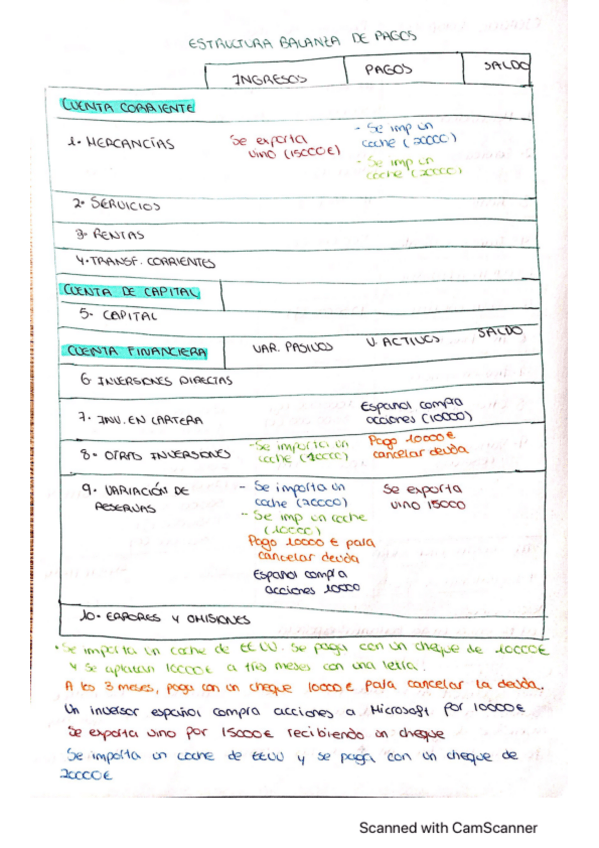 ESTRUCTURA BALANZA DE PAGOS
INGRESOS PAGOS SALDO
CUENTA CORRIENTE
1. MERCANCÍAS
Se exporta
vino (15000€)
- Se imp un
coche (20000)
- Se imp un
coche (20000)
2. SERVICIOS
3. RENTAS
4. TRANSF. CORRIENTES
CUENTA DE CAPITAL
5. CAPITAL
CUENTA FINANCIERA VAR. PASIVOS V. ACTIVOS SALDO
6 INVERSIONES DIRECTAS
7. INV. EN CARTERA
Español compra
acciones (10000)
8. OTRAS INVERSIONES
- Se importa un
coche (10000)
Pago 10000€
cancelar deuda
9. VARIACIÓN DE
RESERVAS
- Se importa un
coche (20000)
- Se imp un coche
(10000)
Pago 10000 € para
cancelar deuda
Español compra
acciones 10000
Se exporta
vino 15000
10. ERRORES Y OMISIONES
• Se importa un coche de EEUU. Se paga con un cheque de 10000€
y se aplazan 10000€ a tres meses con una letra.
A los 3 meses, pago con un cheque 10000€ para cancelar la deuda.
Un inversor español compra acciones a Microsoft por 10000€
Se exporta vino por 15000€ recibiendo un cheque
Se importa un coche de EEUU y se paga con un cheque de
20000€
Scanned with CamScanner